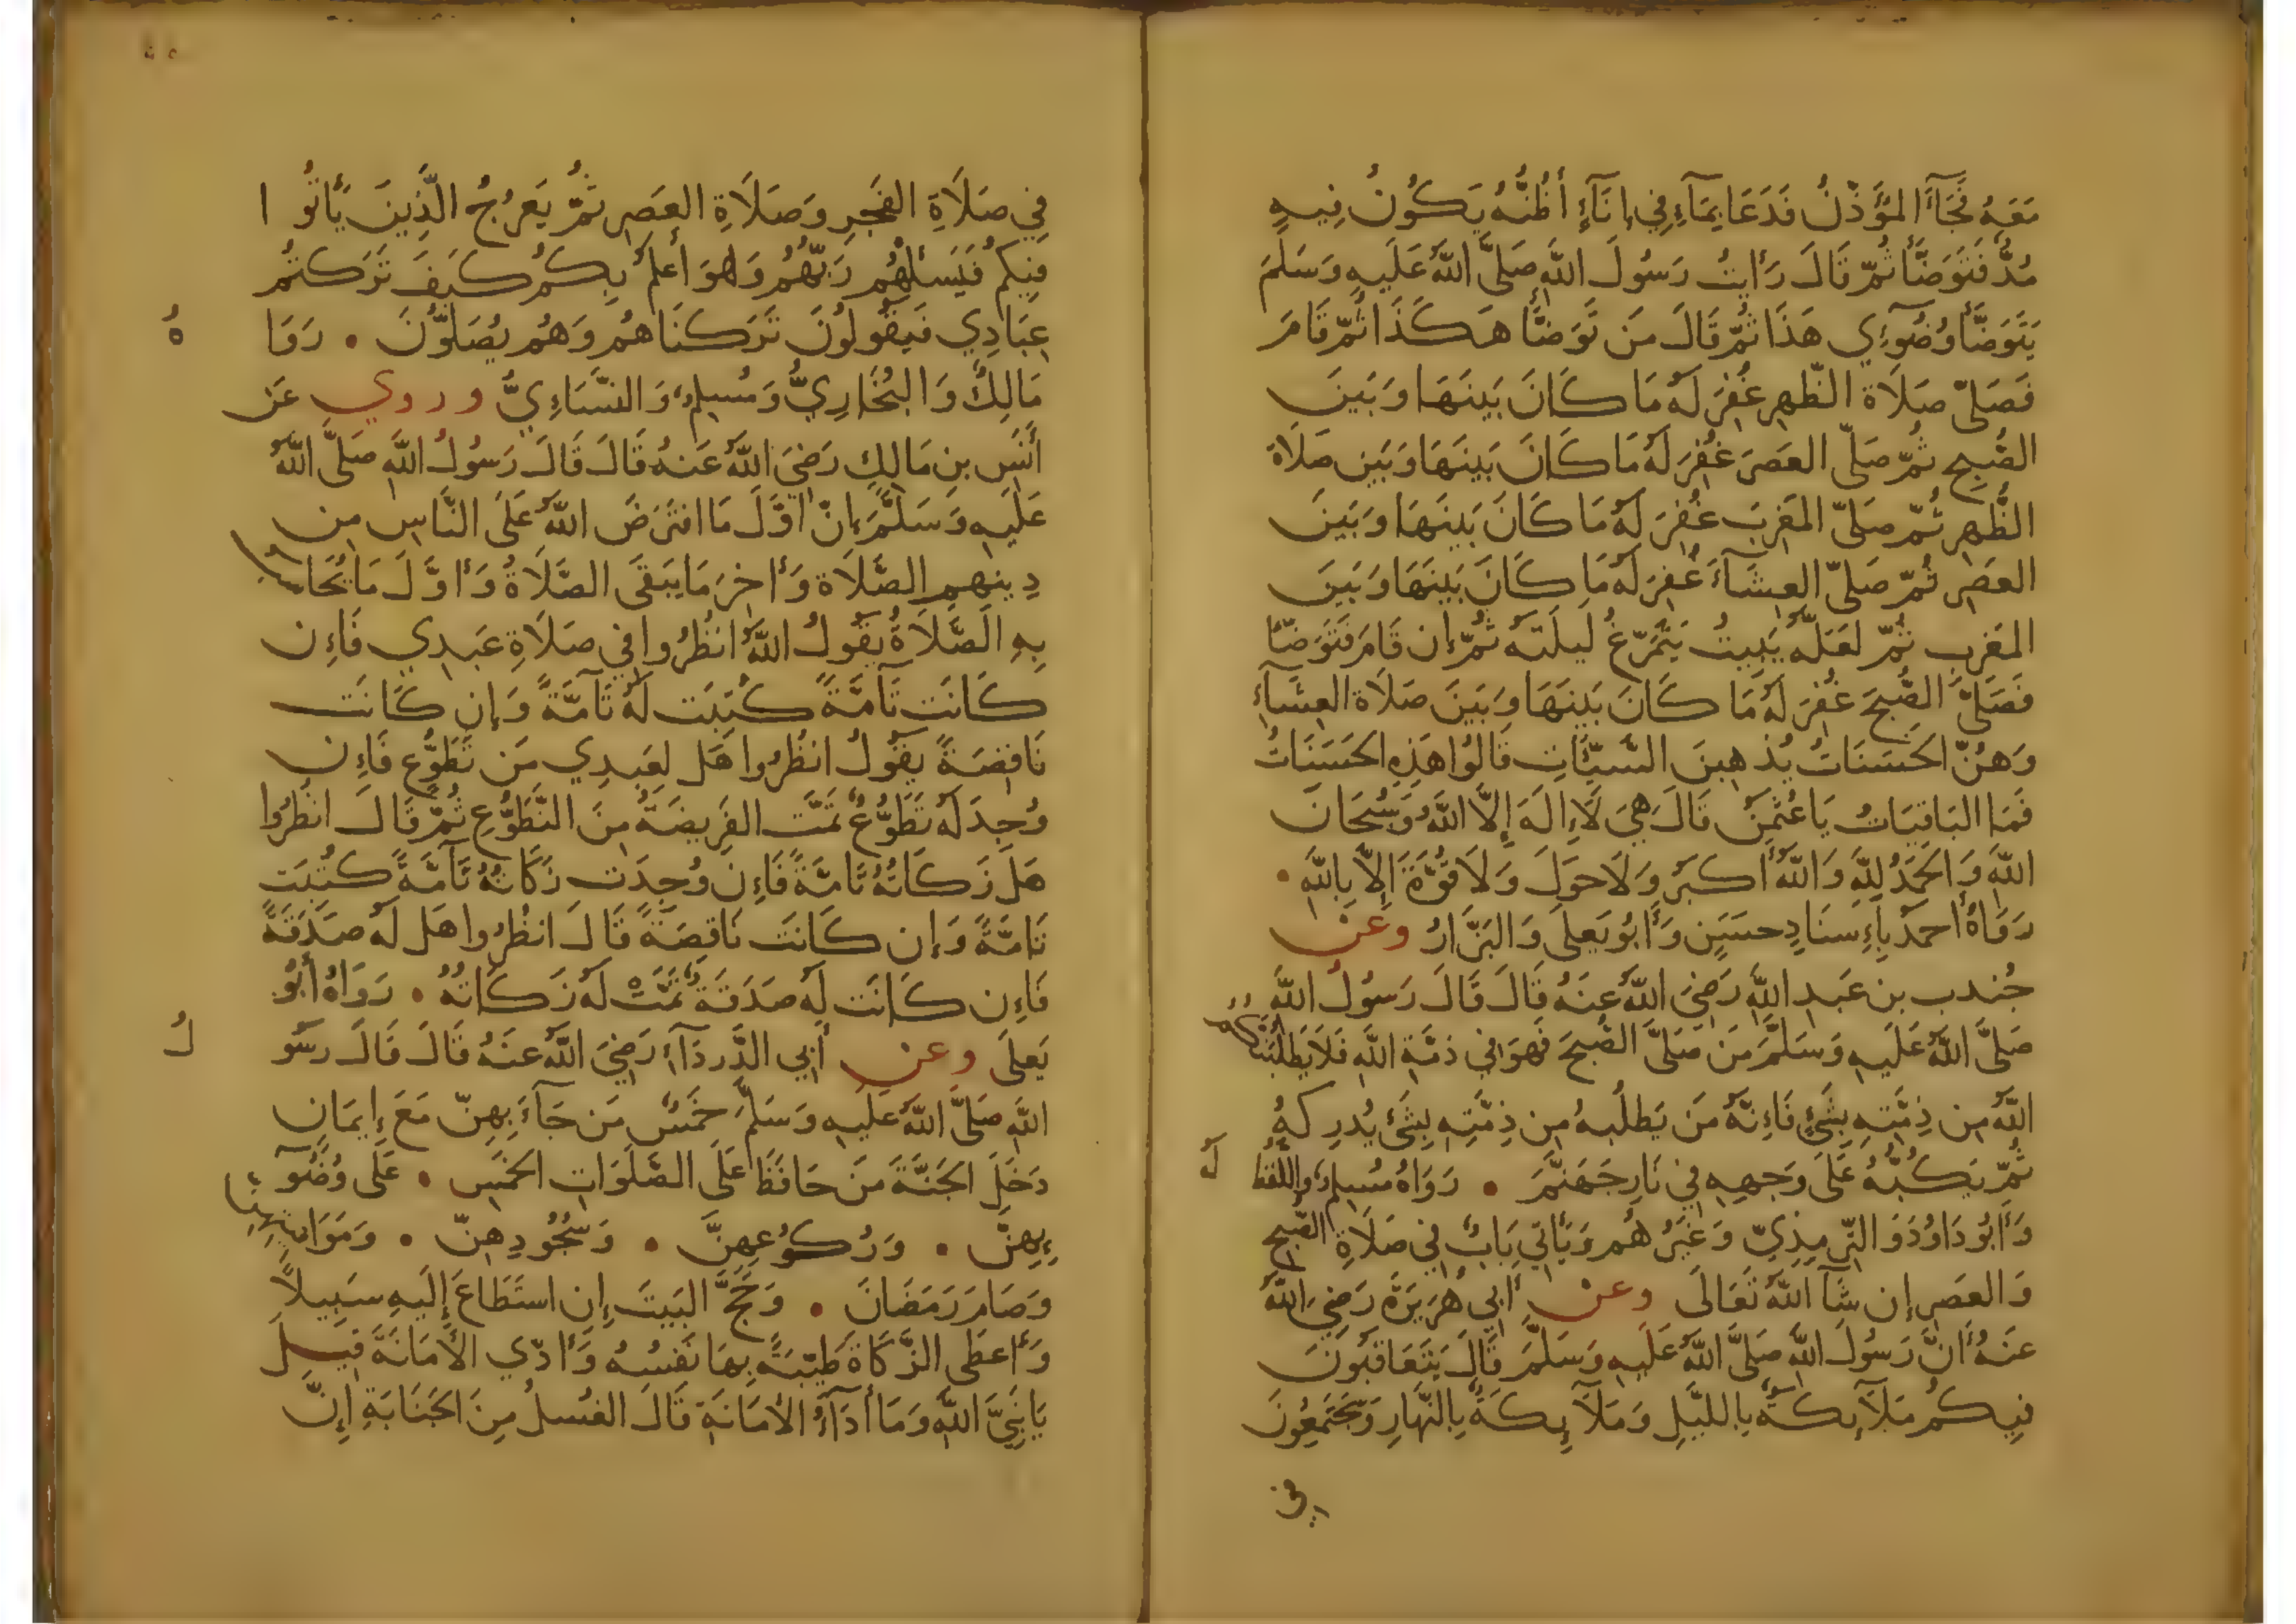 مَعَهُ فَجَآءَ المُؤَذِّنُ فَدَعَا بِمَآءٍ فِي إِنَآءٍ أَظُنُّهُ يَكُونُ فِيهِ
مُدٌّ فَتَوَضَّأَ ثُمَّ قَالَ رَأَيتُ رَسُولَ اللَّهِ صَلَّى اللَّهُ عَلَيهِ وَسَلَّمَ
يَتَوَضَّأُ وُضُوٓءِي هَذَا ثُمَّ قَالَ مَن تَوَضَّأَ هَكَذَا ثُمَّ قَامَ
فَصَلَّى صَلَاةَ الظُّهرِ غُفِرَ لَهُ مَا كَانَ بَينَهَا وَبَينَ
الصُّبحِ ثُمَّ صَلَّى العَصرَ غُفِرَ لَهُ مَا كَانَ بَينَهَا وَبَينَ صَلَاةِ
الظُّهرِ ثُمَّ صَلَّى المَغرِبَ غُفِرَ لَهُ مَا كَانَ بَينَهَا وَبَينَ
العَصرِ ثُمَّ صَلَّى العِشَآءَ غُفِرَ لَهُ مَا كَانَ بَينَهَا وَبَينَ
المَغرِبِ ثُمَّ لَعَلَّهُ يَبِيتُ يَتَمَرَّغُ لَيلَتَهُ ثُمَّ إِن قَامَ فَتَوَضَّأَ
فَصَلَّى الصُّبحَ غُفِرَ لَهُ مَا كَانَ بَينَهَا وَبَينَ صَلَاةِ العِشَآءِ
وَهُنَّ الحَسَنَاتُ يُذهِبنَ السَّيِّئَاتِ قَالُوا هَذِهِ الحَسَنَاتُ
فَمَا البَاقِيَاتُ يَا عُثمَنُ قَالَ هِيَ لَاإِلَهَ إِلَّا اللَّهُ وَسُبحَانَ
اللَّهِ وَالحَمدُ لِلَّهِ وَاللَّهُ أَكبَرُ وَلَا حَولَ وَلَا قُوَّةَ إِلَّا بِاللَّهِ •
رَوَاهُ أَحمَدُ بِإِسنَادٍ حَسَنٍ وَأَبُو يَعلَى وَالبَزَّارُ وعن
جُندب بن عَبدِ اللَّهِ رَضِيَ اللَّهُ عَنهُ قَالَ قَالَ رَسُولُ اللَّهِ
صَلَّى اللَّهُ عَلَيهِ وَسَلَّمَ مَن صَلَّى الصُّبحَ فَهوَ فِي ذمَّةِ اللَّهِ فَلَا يَطلُبَنَّكُمُ
اللَّهُ مِن ذِمَّتِهِ بِشَيءٍ فَإِنَّهُ مَن يَطلُبهُ مِن ذِمَّتِهِ بِشَيءٍ يُدرِكهُ
ثُمَّ يَكُبُّهُ عَلَى وَجهِهِ فِي نَارِ جَهَنَّمَ • رَوَاهُ مُسلِمٌ وَاللَّفظُ لَهُ
وَأَبُو دَاوُدَ وَالتِّرمِذِيّ وَغَيرُهُم وَيَأتِي بَابٌ فِي صَلَاةِ الصُّبحِ
وَالعَصرِ إِن شَآ اللَّهُ تَعَالَى وعن أَبِي هُرَيرَةَ رَضِيَ اللَّهُ
عَنهُ أَنَّ رَسُولَ اللَّهِ صَلَّى اللَّهُ عَلَيهِ وَسَلَّمَ قَالَ يَتَعَاقَبُونَ
فِيكُم مَلَآئِكَةٌ بِاللَّيلِ وَمَلَآئِكَةٌ بِالنَّهَارِ وَيَجتَمِعُونَ
في
فِي صَلَاةِ الفَجرِ وَصَلَاةِ العَصرِ ثُمَّ يَعرُجُ الَّذِينَ بَاتُوا
فِيكُم فَيَسأَلُهُم رَبُّهُم وَهوَ أَعلَمُ بِكُم كَيفَ تَرَكتُم
عِبَادِي فَيَقُولُونَ تَرَكنَاهُم وَهُم يُصَلُّونَ • رَوَاهُ
مَالِكٌ وَالبُخَارِيُّ وَمُسلِمٌ وَالنَّسَاءِيُّ وروي عَن
أَنَسِ بنِ مَالِكٍ رَضِيَ اللَّهُ عَنهُ قَالَ قَالَ رَسُولُ اللَّهِ صَلَّى اللَّهُ
عَلَيهِ وَسَلَّمَ إِنَّ أَوَّلَ مَا افتَرَضَ اللَّهُ عَلَى النَّاسِ مِن
دِينِهِمِ الصَّلَاةُ وَأَاخِرَ مَا يَبقَى الصَّلَاةُ وَأَوَّلَ مَا يُحَاسَبُ
بِهِ الصَّلَاةُ يَقُولُ اللَّهُ انظُرُوا فِي صَلَاةِ عَبدِي فَإِن
كَانَت تَآمَّةً كُتِبَت لَهُ تَآمَّةً وَإِن كَانَت
نَاقِصَةً يَقُولُ انظُرُوا هَل لِعَبدِي مَن تَطَوُّعٍ فَإِن
وُجِدَ لَهُ تَطَوُّعٌ تَمَّت الفَرِيضَةُ مِنَ التَّطَوُّعِ ثُمَّ قَالَ انظُرُوا
هَل زَكَاتُهُ تَامَّةً فَإِن وُجِدَت زَكَاتُهُ تَآمَّةً كُتِبَت
تَامَّةً وَإِن كَانَت نَاقِصَةً قَالَ انظُرُوا هَل لَهُ صَدَقَةً
فَإِن كَانَت لَهُ صَدَقَةٌ تَمَّت لَهُ زَكَاتُهُ • رَوَاهُ أَبُو
يَعلَى وعن أَبِي الدَّردَآءِ رَضِيَ اللَّهُ عَنهُ قَالَ قَالَ رَسُولُ
اللَّهِ صَلَّى اللَّهُ عَلَيهِ وَسَلَّمَ خَمسٌ مَن جَآءَ بِهِنَّ مَعَ إِيمَانٍ
دَخَلَ الجَنَّةَ مَن حَافَظَ عَلَى الصَّلَوَاتِ الخَمسِ • عَلَى وُضُوٓ
ئِهِنَّ • وَرُكُوعِهِنَّ • وَسُجُودِهِنَّ • وَمَوَاقِيتِهِنَّ
وَصَامَ رَمَضَانَ • وَحَجَّ البَيتَ إِن استَطَاعَ إِلَيهِ سَبِيلًا
وَأَعطَى الزَّكَاةَ طَيِّبَةً بِهَا نَفسُهُ وَأَدَّي الأَمَانَةَ قِيلَ
يَا نَبِيَّ اللَّهِ وَمَا أَدَآءُ الأَمَانَةِ قَالَ الغُسلُ مِنَ الجَنَابَةِ إِنَّ